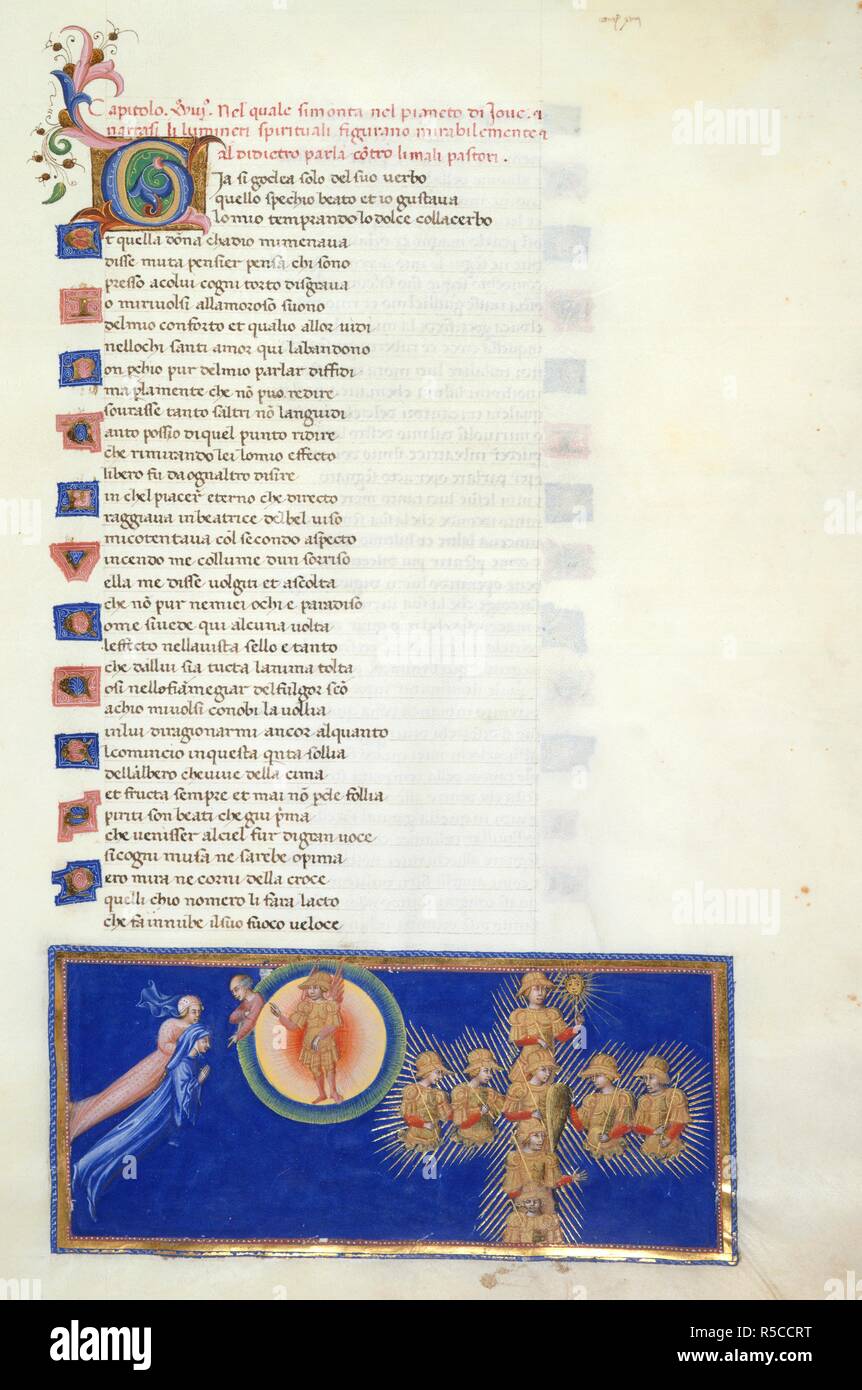 Capitolo. Nel quale si monta nel pianeto di Joue. &
narrasi li lumineri spirituali figurano mirabilemente &
al didietro parla cõtro li mali pastori.
Gia si godea solo del suo verbo
quello spechio beato et io gustava
lo mio temprando lo dolce collacerbo
t quella dõna chadio mi menava
disse muta pensier pensa chi sono
presso acolui cogni torto disgrava
o mi rivolsi allamoroso suono
del mio conforto et qualio allor uidi
nellochi santi amor qui labandono
on pchio pur del mio parlar diffidi
ma p la mente che nõ puo redire
sourasse tanto saltri nõ languidi
anto possio di quel punto ridire
che rimirando lei lo mio effecto
libero fu da ognaltro disire
in chel piacer eterno che directo
raggiava in beatrice del bel viso
mi cotentava col secondo aspecto
incendo me col lume dun sorriso
ella me disse uolgiti et ascolta
che nõ pur ne miei ochi e paradiso
ome si uede qui alcuna uolta
leffecto nella uista sello e tanto
che dallui sia tucta lanima tolta
osi nello fiãmegiar del fulgor scõ
a chio mi volsi conobi la vollia
in lui di ragionarmi ancor alquanto
l comincio in questa qnta sollia
dellalbero che uiue della cima
et fructa sempre et mai nõ pde follia
piriti son beati che giu pma
che venisser al ciel fur di gran uoce
si cogni musa ne sarebe opima
ero mira ne corni della croce
quelli chio nomero li fara lacto
che fa in nube il suo fuoco veloce
alamy
Image ID: R5CCRT
www.alamy.com